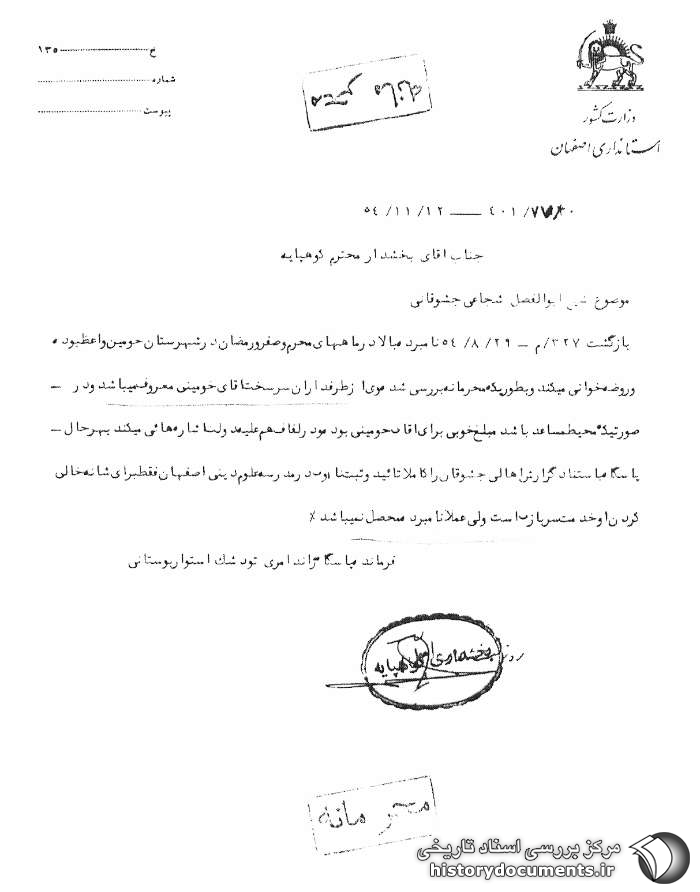 وزارت کشور
استانداری اصفهان
۱۳۵
شماره
پیوست
محرمانه
۵۴/۱۱/۱۲ — ۴۰۱/
جناب اقای بخشدار محترم کوهپایه
موضوع ابوالفضل شجاعی جشوقانی
بازگشت ۳۲۷/م — ۵۴/۸/۲۹ نامبرده بالا در ماههای محرم و صفر و رمضان در شهرستان خومین واعظ بوده
وروضه خوانی میکند و بطوریکه محرمانه بررسی شد موی از طرفداران سرسخت اقای خومینی معروف میباشد و در —
صورتیکه محیط مساعد باشد مبلغ خوبی برای اقای خومینی بوده و در لفافه هم علیه دولت اشاره هائی میکند بهرحال —
پاسگاه باستناد گزارش اهالی جشوقان را کاملا تائید و ثبت نام او در مدرسه علوم دینی اصفهان فقط برای شانه خالی
کردن او خدمت سربازی است ولی عملا نامبرده محصل نمیباشد ٪
فرمانده پاسگاه ژاندامری تودشک استوار بوستانی
بخشداری کوهپایه
محرمانه
مرکز بررسی اسناد تاریخی
historydocuments.ir